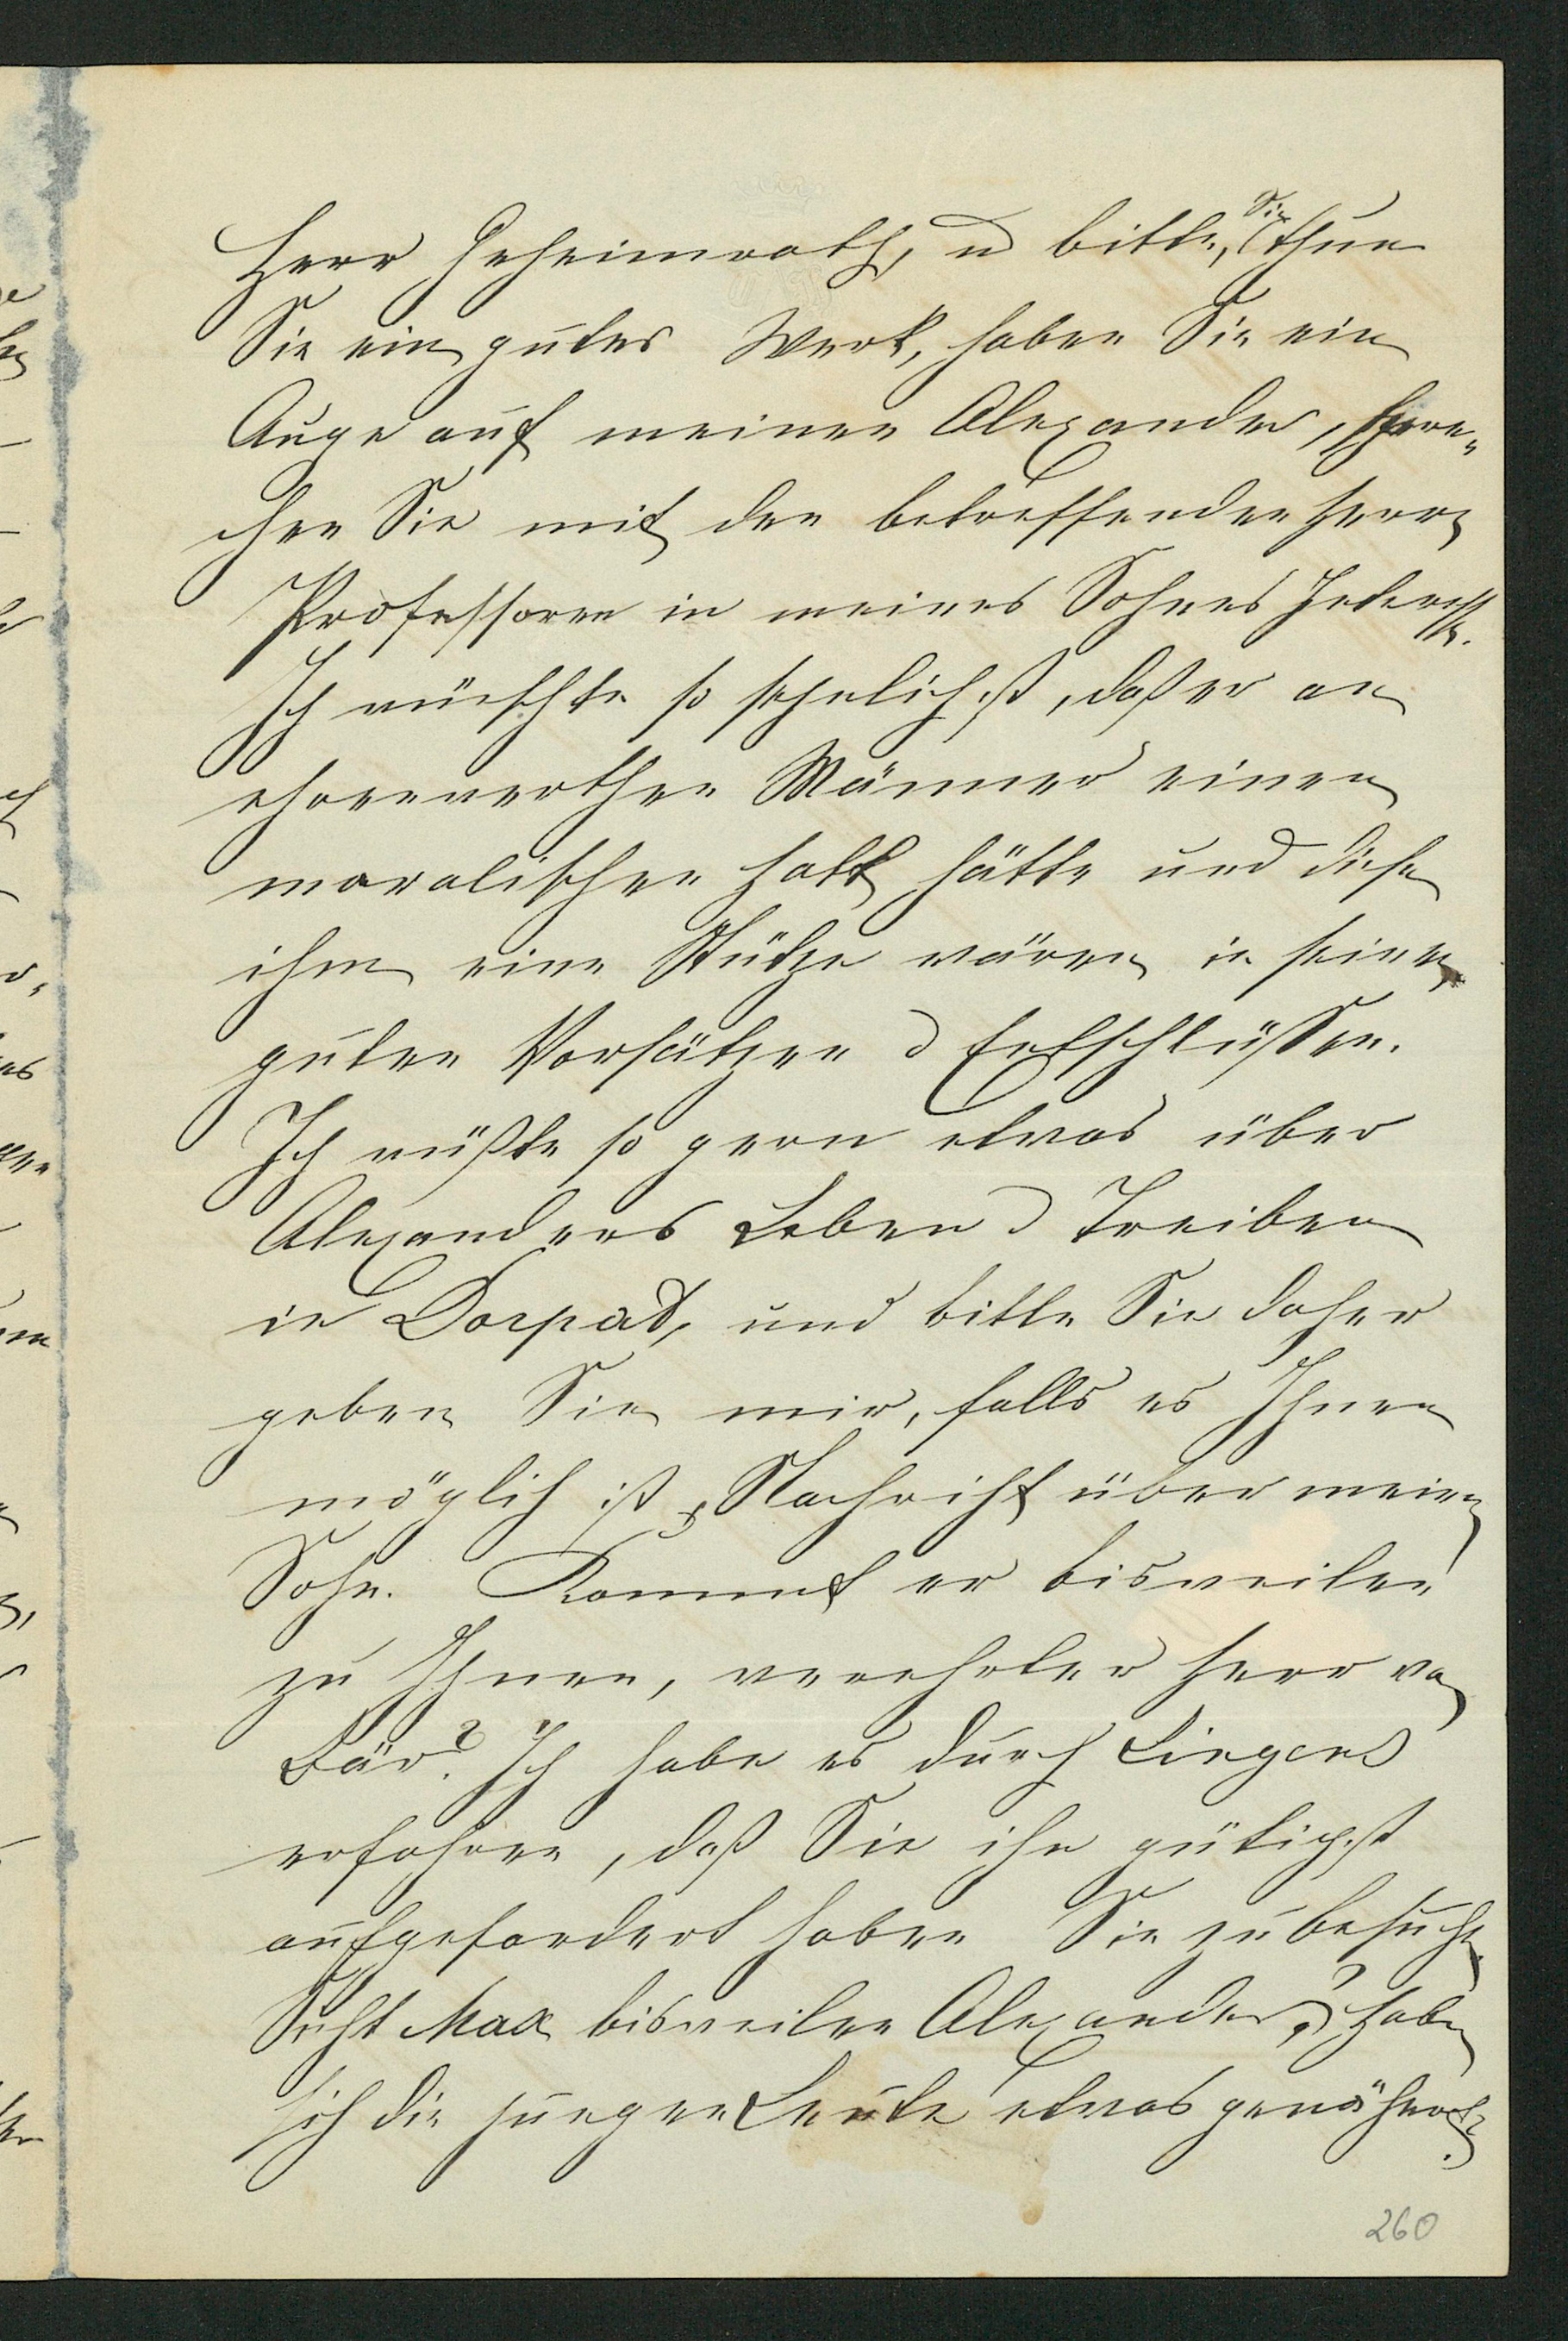 Herr Geheimrath, u bitte, Sie thun
Sie ein gutes Werk, haben Sie ein
Auge auf meinen Alexander, spre-
chen Sie mit den betreffenden Herrn
Professoren in meines Sohnes Interesse.
Ich wünschte so sehnlichst, daß er an
ehrenwerthen Männer einen
moralischen Halt hätte und diese
ihm eine Stütze wären in seinen
guten Vorsätzen u Entschlüssen.
Ich wüßte so gern etwas über
Alexanders Leben u Treiben
in Dorpat, und bitte Sie daher
geben Sie mir, falls es Ihnen
möglich ist, Nachricht über meinen
Sohn. Kommt er bisweilen
zu Ihnen, verehrter Herr von
Bär? Ich habe es durch Lingens
erfahren, daß Sie ihn gütigst
aufgefordert haben Sie zu besuchen.
Sieht Max bisweilen Alexander? haben
sich die jungen Leute etwas genähert?
260